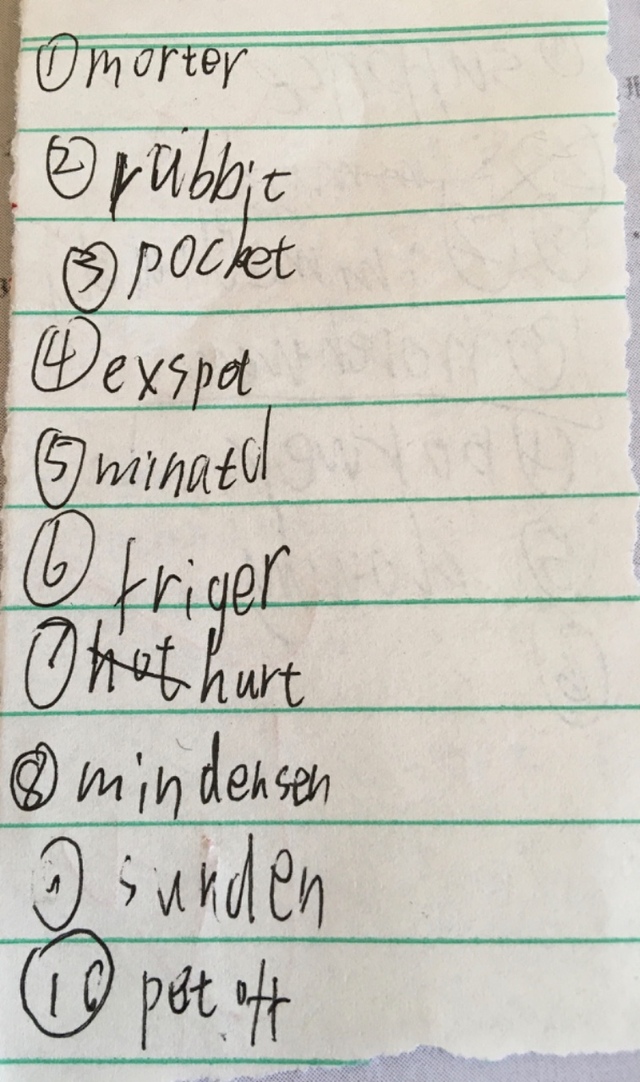 ① morter
② rabbit
③ pocket
④ exspot
⑤ minatd
⑥ friger
⑦ hot hurt
⑧ mindensen
⑨ sunden
⑩ pot off